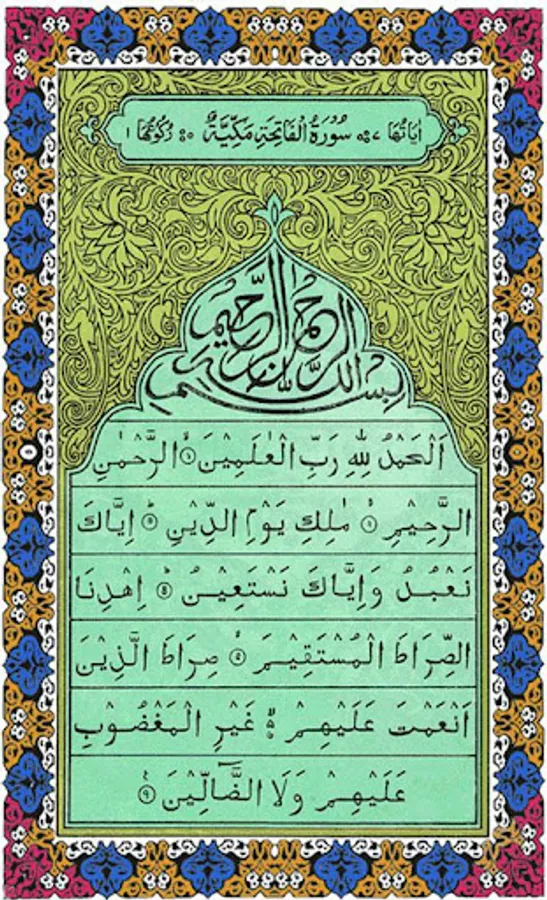 اٰیَاتُهَا ٧ سُوْرَةُ الْفَاتِحَةِ مَكِّیَّةٌ ٥ رُكُوْعُهَا ١
بِسْمِ اللهِ الرَّحْمٰنِ الرَّحِیْمِ
اَلْحَمْدُ لِلّٰهِ رَبِّ الْعٰلَمِیْنَ ١ الرَّحْمٰنِ
الرَّحِیْمِ مٰلِكِ یَوْمِ الدِّیْنِ اِیَّاكَ
نَعْبُدُ وَاِیَّاكَ نَسْتَعِیْنُ اِهْدِنَا
الصِّرَاطَ الْمُسْتَقِیْمَ صِرَاطَ الَّذِیْنَ
اَنْعَمْتَ عَلَیْهِمْ غَیْرِ الْمَغْضُوْبِ
عَلَیْهِمْ وَلَا الضَّآلِّیْنَ